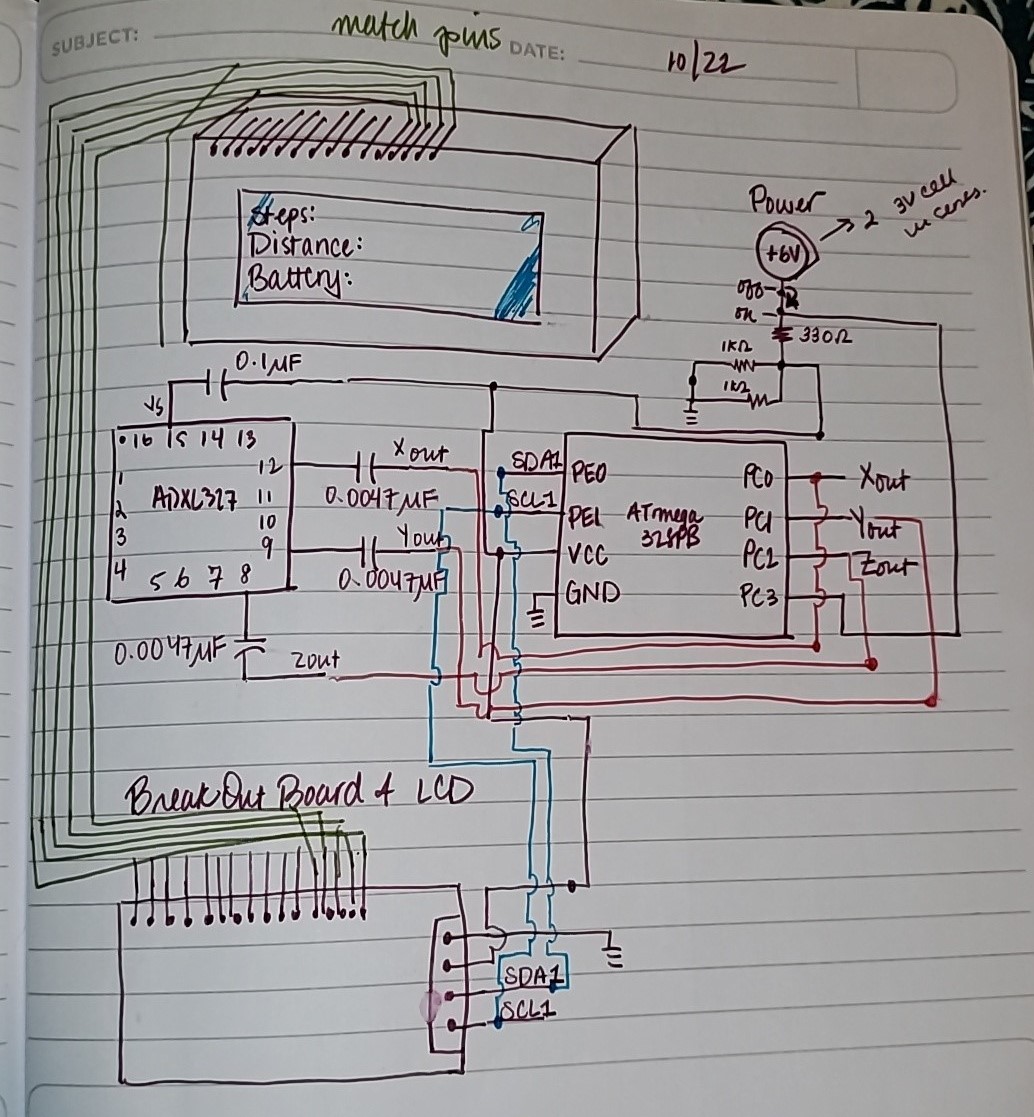 SUBJECT:
match pins
DATE:
10/22
Steps:
Distance:
Battery:
Power
+6V
2 3V cell
in series.
off
on
330Ω
1KΩ
1KΩ
0.1μF
Vs
16 15 14 13
1
2
3
4
ADXL327
12
11
10
9
5 6 7 8
Xout
0.0047μF
Yout
0.0047μF
0.0047μF
Zout
SDA1
SCL1
PE0
PE1
VCC
GND
ATmega
328PB
PC0
PC1
PC2
PC3
Xout
Yout
Zout
BreakOut Board 4 LCD
SDA1
SCL1